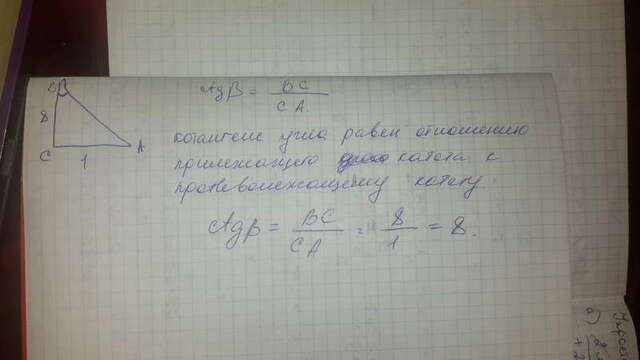 B
8
C
1
A
ctgβ = BC / CA
котангенс угла равен отношению
прилежащего катета к
противолежащему катету.
ctgβ = BC / CA = 8 / 1 = 8.
а)